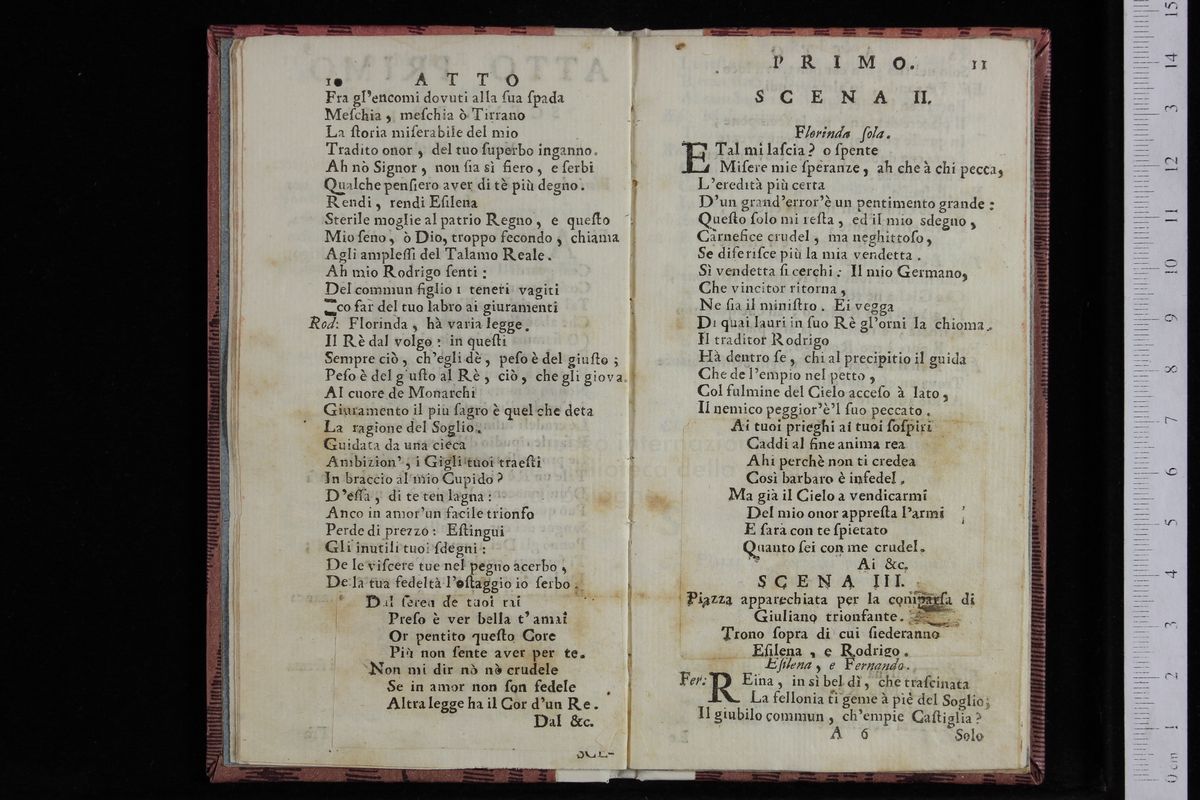 10 ATTO
Fra gl'encomi dovuti alla ſua ſpada
Meſchia, meſchia ò Tirrano
La ſtoria miſerabile del mio
Tradito onor, del tuo ſuperbo inganno.
Ah nò Signor, non ſia sì fiero, e ſerbi
Qualche penſiero aver di tè più degno.
Rendi, rendi Eſilena
Sterile moglie al patrio Regno, e queſto
Mio ſeno, ò Dio, troppo fecondo, chiama
Agli ampleſſi del Talamo Reale.
Ah mio Rodrigo ſenti:
Del commun figlio i teneri vagiti
Eco far del tuo labro ai giuramenti
Rod: Florinda, hà varia legge.
Il Rè dal volgo: in queſti
Sempre ciò, ch'egli dè, peſo è del giuſto;
Peſo è del giuſto al Rè, ciò, che gli giova.
Al cuore de Monarchi
Giuramento il più ſagro è quel che deta
La ragione del Soglio.
Guidata da una cieca
Ambizion', i Gigli tuoi traeſti
In braccio al mio Cupido?
D'eſſa, di te ten lagna:
Anco in amor'un facile trionfo
Perde di prezzo: Eſtingui
Gli inutili tuoi ſdegni:
De le viſcere tue nel pegno acerbo,
De la tua fedeltà l'oſtaggio io ſerbo.
Dal ſeren de tuoi rai
Preſo è ver bella t'amai
Or pentito queſto Core
Più non ſente aver per te.
Non mi dir nò nò crudele
Se in amor non ſon fedele
Altra legge ha il Cor d'un Re.
Dal &c.
SCE-
PRIMO. 11
SCENA II.
Florinda ſola.
E Tal mi laſcia? o ſpente
Miſere mie ſperanze, ah che à chi pecca,
L'eredità più certa
D'un grand'error'è un pentimento grande:
Queſto ſolo mi reſta, ed il mio sdegno,
Carnefice crudel, ma neghittoſo,
Se diferiſce più la mia vendetta.
Sì vendetta ſi cerchi: Il mio Germano,
Che vincitor ritorna,
Ne ſia il miniſtro. Ei vegga
Di quai lauri in ſuo Rè gl'orni la chioma.
Il traditor Rodrigo
Hà dentro ſe, chi al precipitio il guida
Che de l'empio nel petto,
Col fulmine del Cielo acceſo à lato,
Il nemico peggior'è'l ſuo peccato.
Ai tuoi prieghi ai tuoi ſoſpiri
Caddi al fine anima rea
Ahi perchè non ti credea
Cosi barbaro è infedel.
Ma già il Cielo a vendicarmi
Del mio onor appreſta l'armi
E ſarà con te ſpietato
Quanto ſei con me crudel.
Ai &c.
SCENA III.
Piazza apparechiata per la comparſa di
Giuliano trionfante.
Trono ſopra di cui ſiederanno
Eſilena, e Rodrigo.
Eſilena, e Fernando.
Fer: REina, in sì bel dì, che traſcinata
La fellonia ti geme à piè del Soglio;
Il giubilo commun, ch'empie Caſtiglia?
A 6 Solo